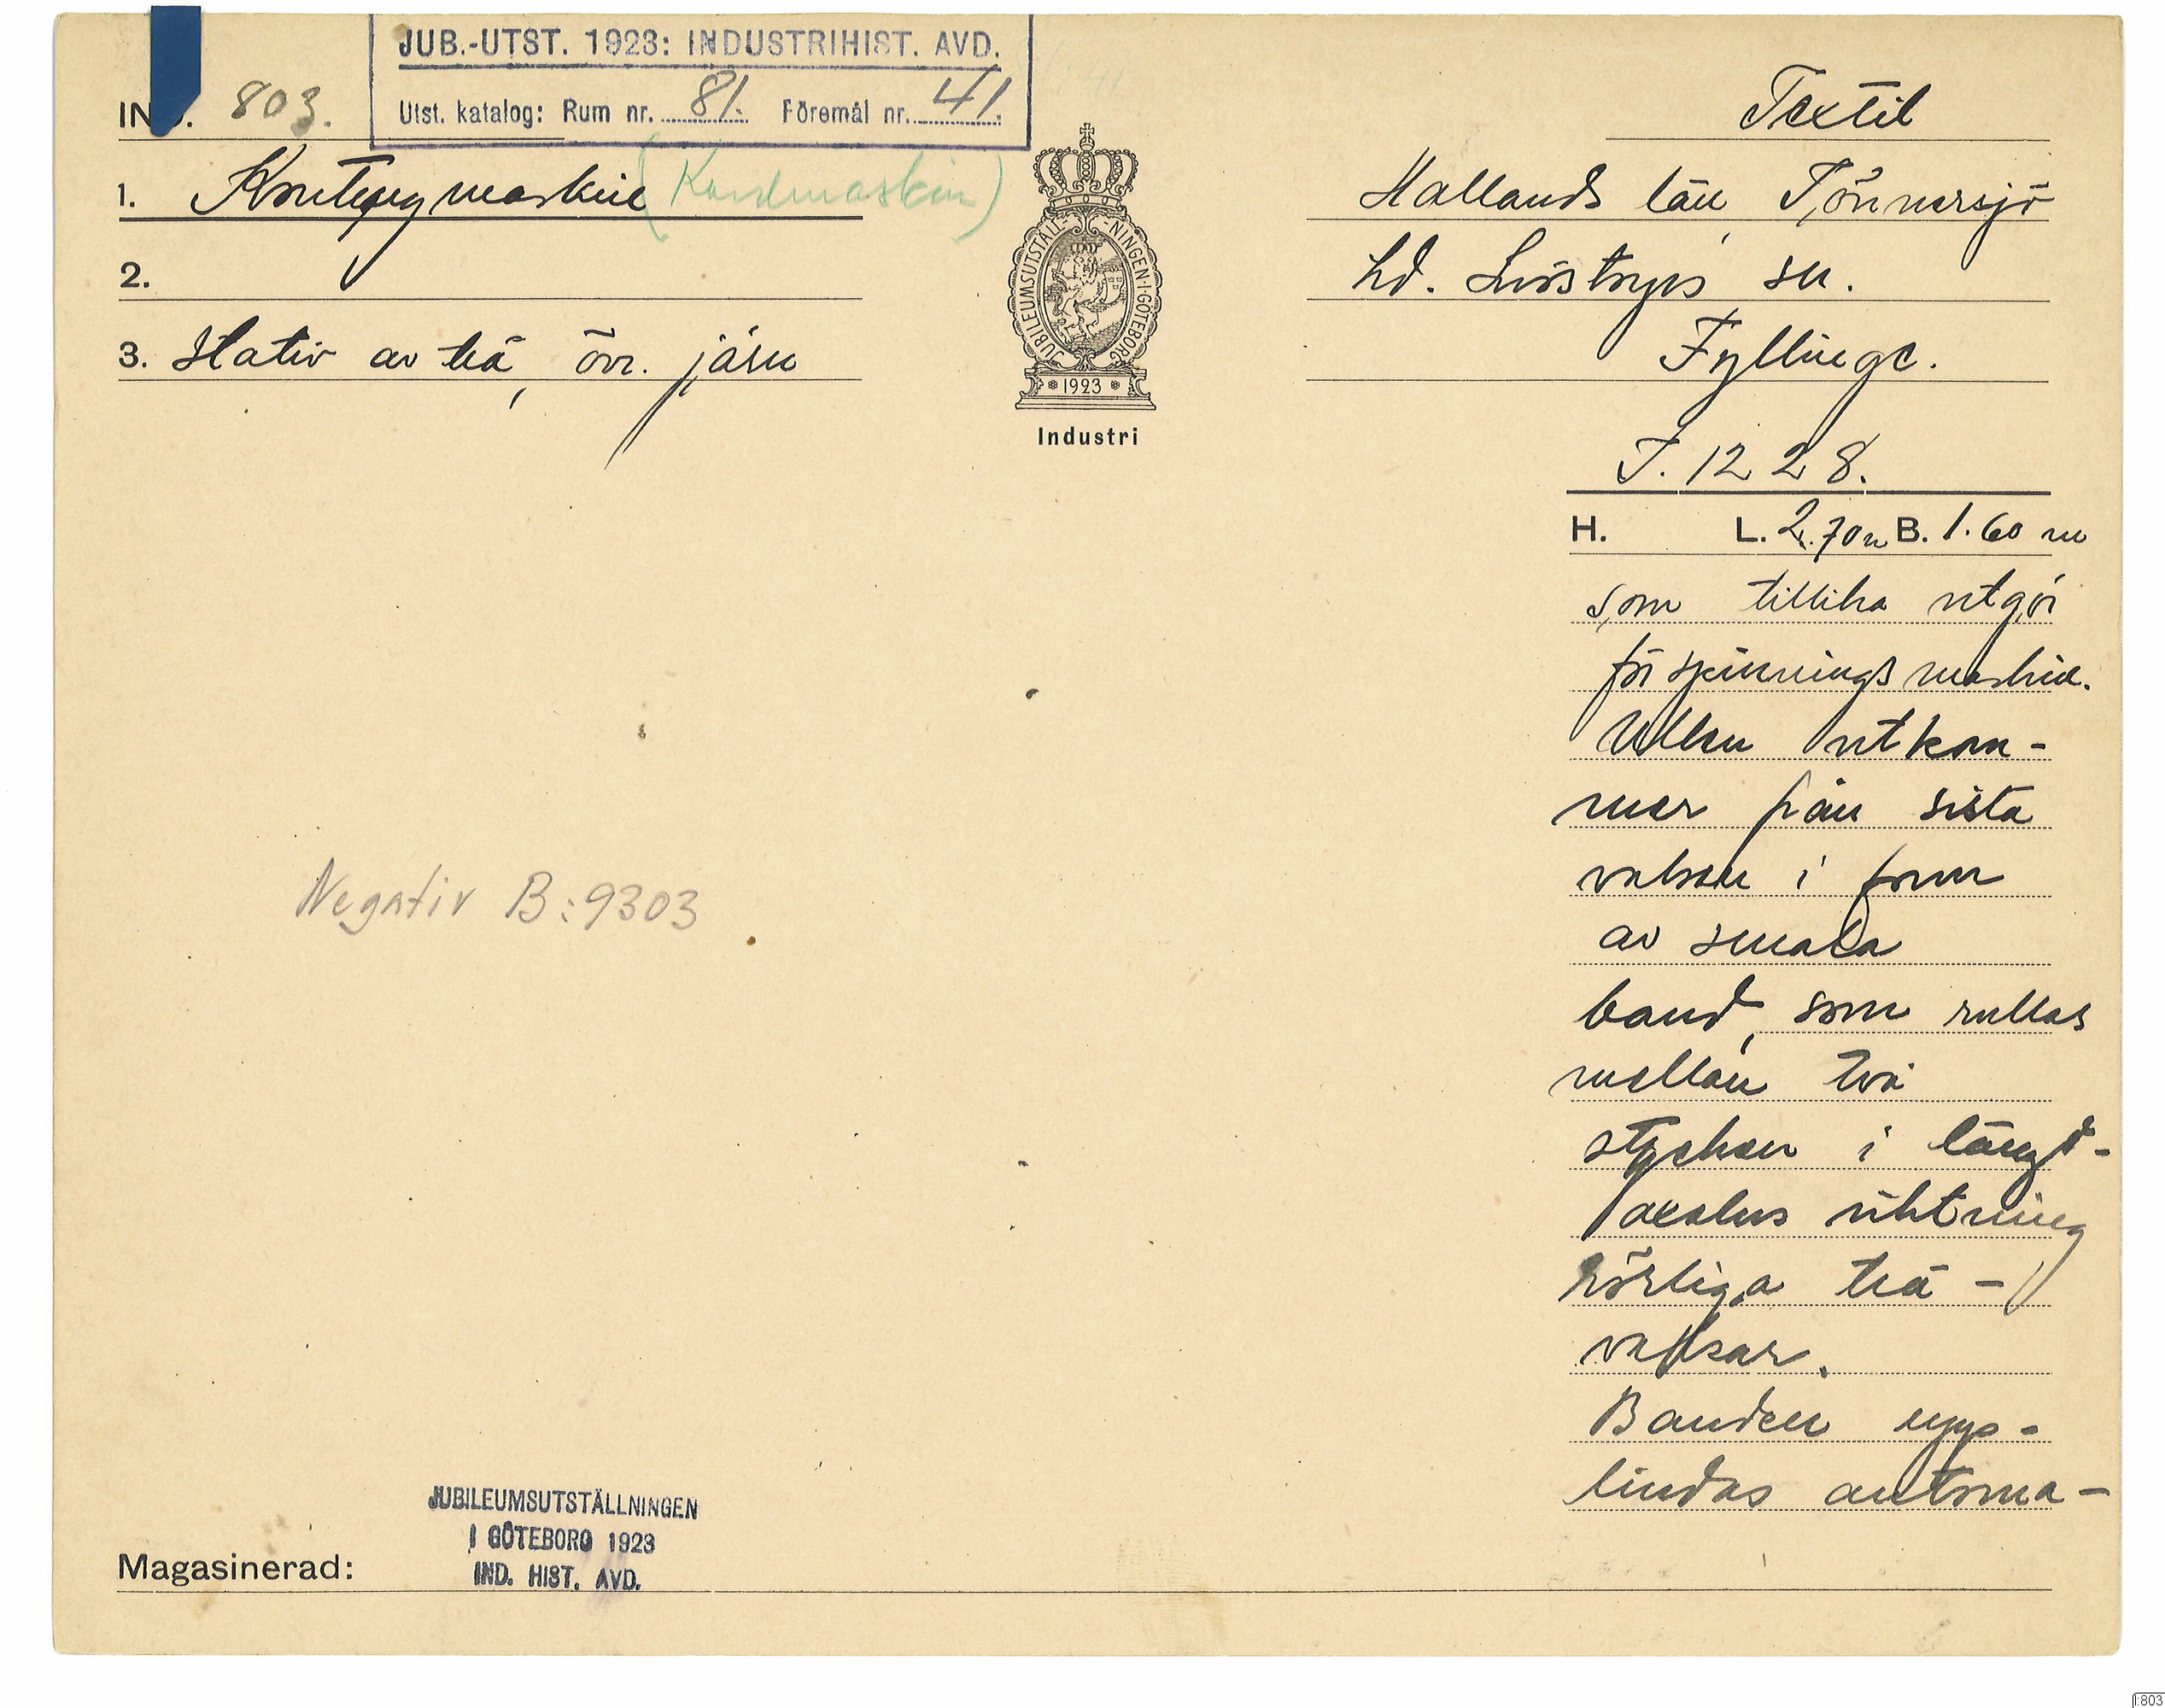 JUB.-UTST. 1923: INDUSTRIHIST. AVD.
Utst. katalog: Rum nr. 81. Föremål nr. 41.
803.
Textil
1. maskin (Kardmaskin)
Hallands län, Tönnersjö
2.
hd. sn.
3. Stativ av trä, övr. järn
Fyllinge.
JUBILEUMSUTSTÄLLNINGEN·I·GÖTEBORG
1923
Industri
T. 1228.
H. L. 2.70 m B. 1.60 m
som tillika utgör
förspinningsmaskin.
Ullen utkom-
mer från sista
valsen i form
av smala
band, som rullas
mellan två
stycken i längd-
axelns riktning
rörliga trä-
valsar.
Banden upp-
lindas automa-
Negativ B:9303
JUBILEUMSUTSTÄLLNINGEN
I GÖTEBORG 1923
IND. HIST. AVD.
Magasinerad:
I:803